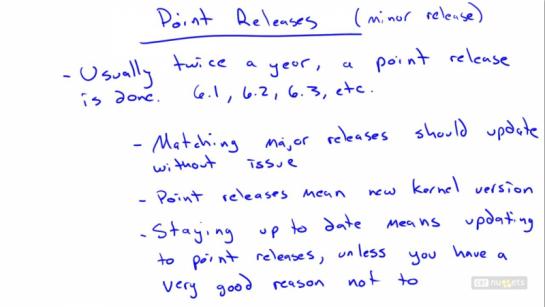 Point Releases (minor release)
- Usually twice a year, a point release
is done. 6.1, 6.2, 6.3, etc.
- Matching major releases should update
without issue
- Point releases mean new kernel version
- Staying up to date means updating
to point releases, unless you have a
very good reason not to
cbt nuggets